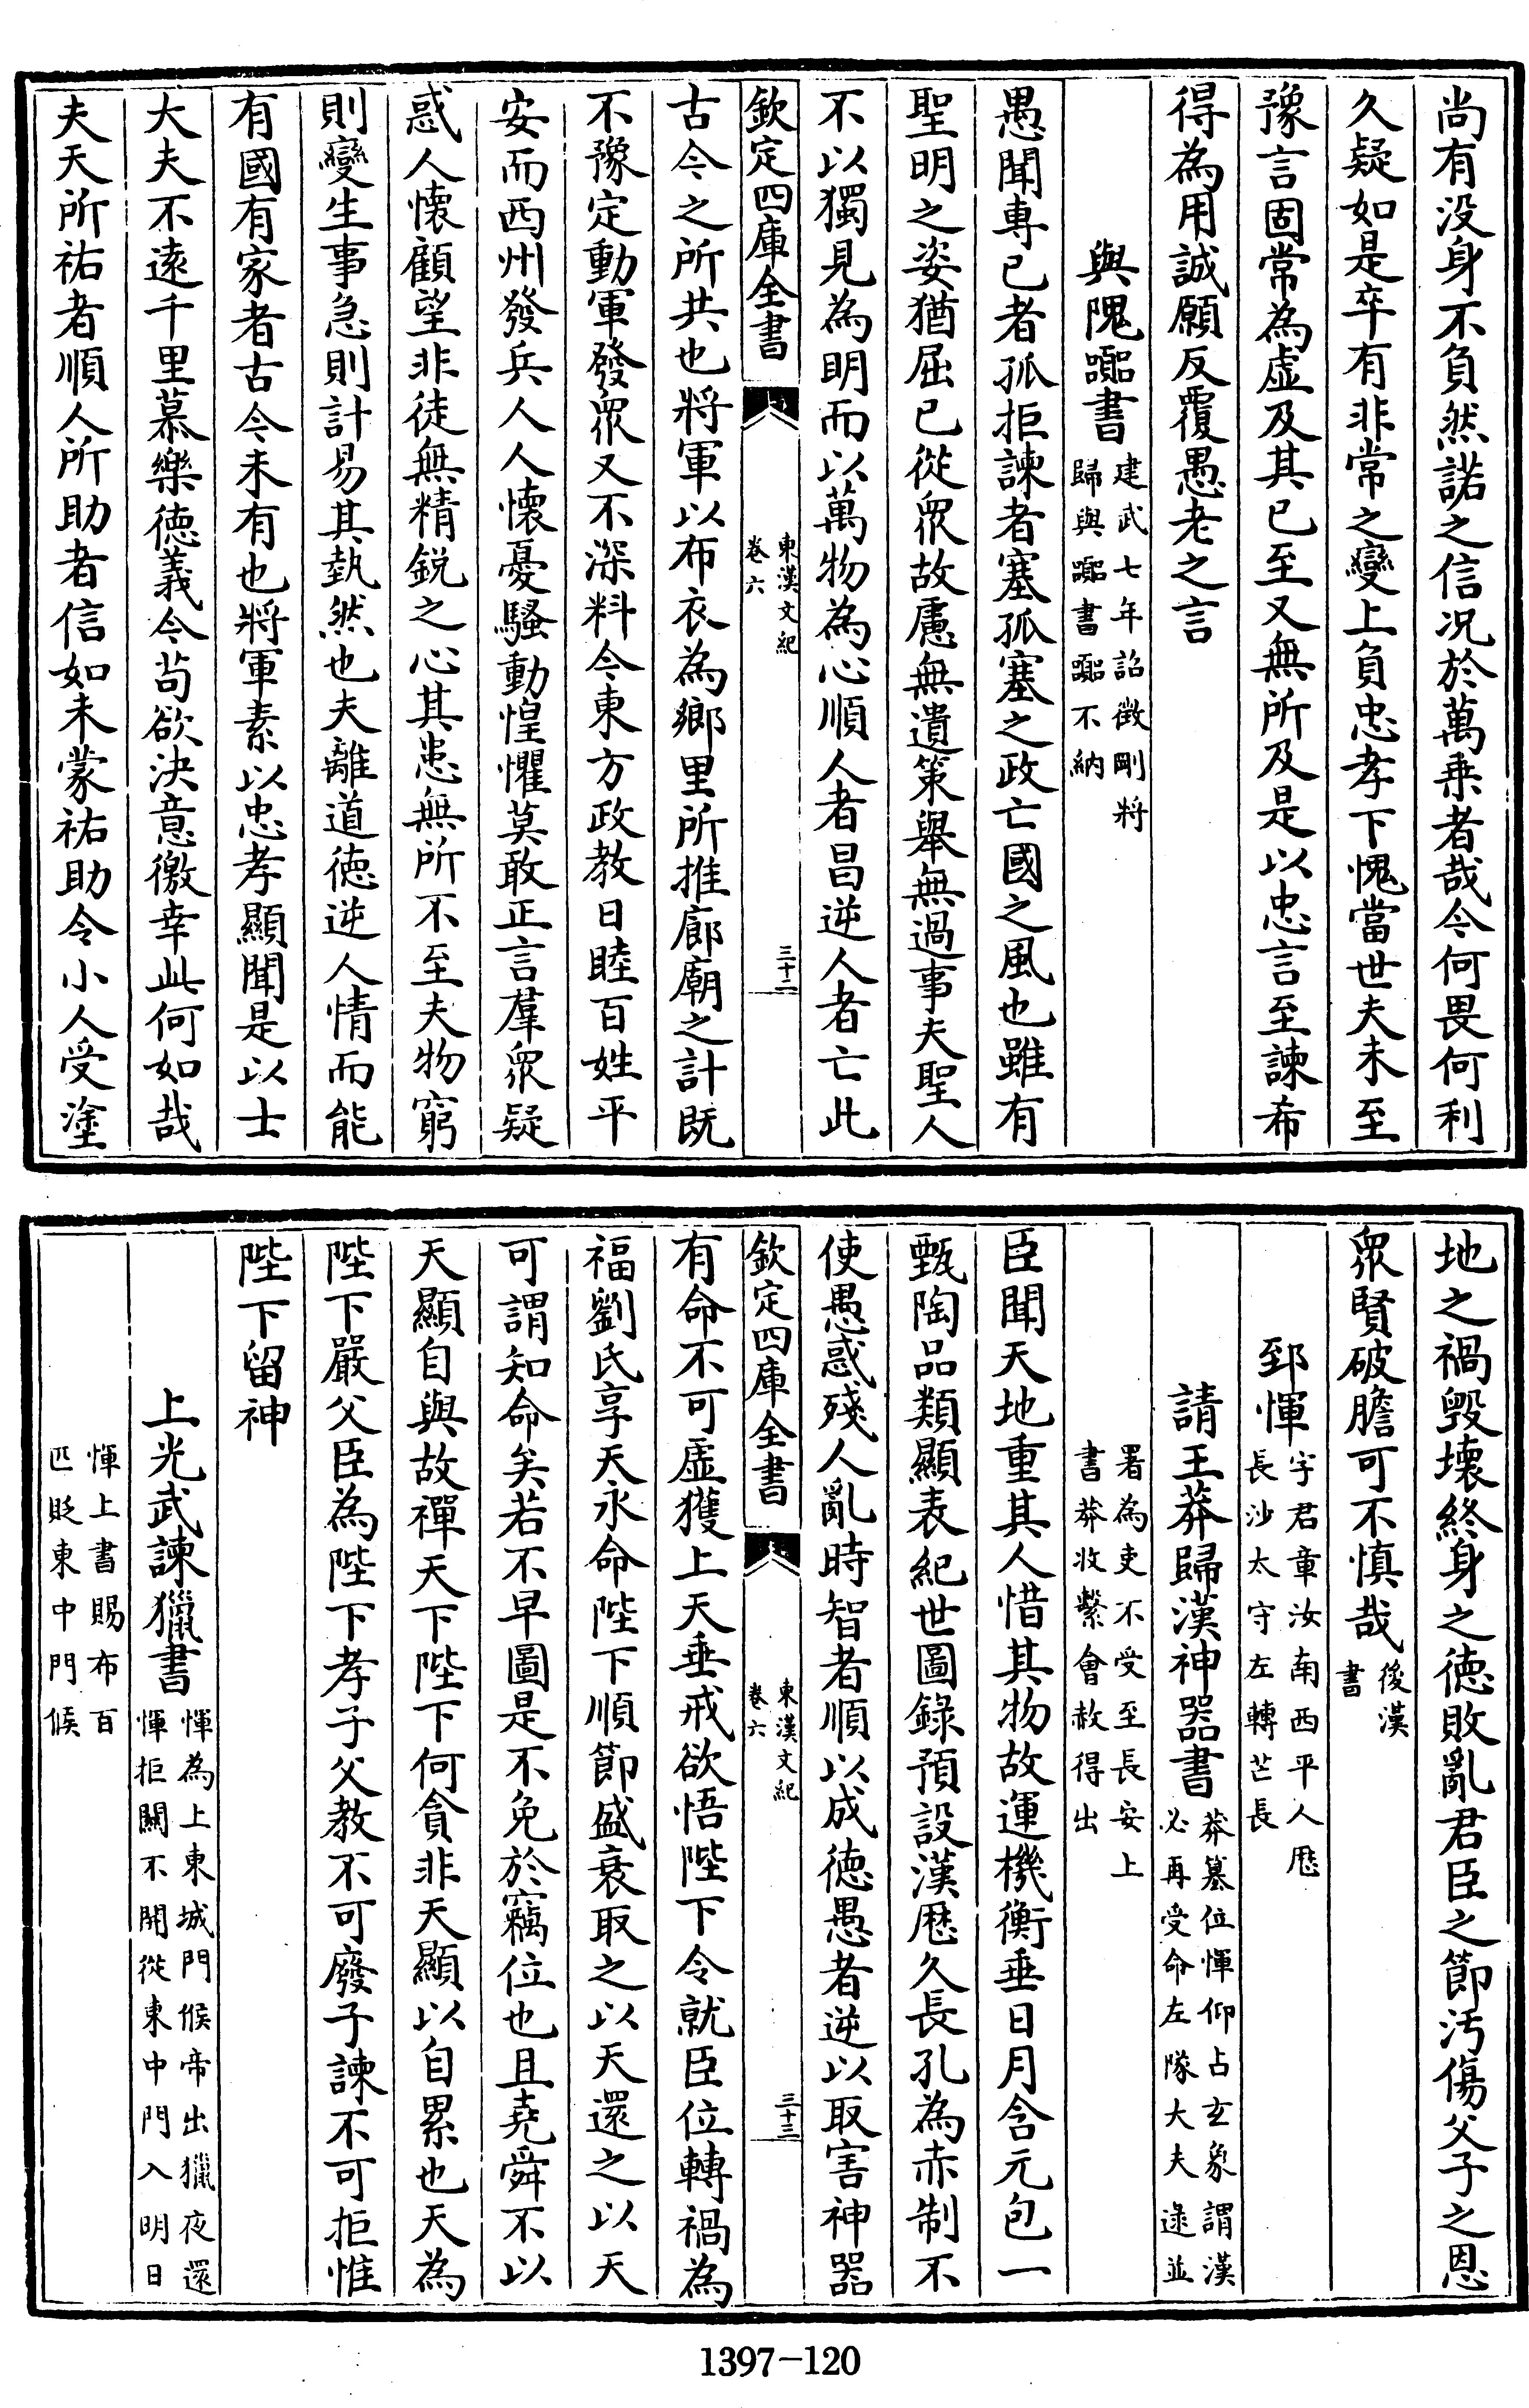 尚有没身不負然諾之信况於萬乗者哉今何畏何利
久疑如是卒有非常之變上負忠孝下愧當世夫未至
豫言固常為虚及其已至又無所及是以忠言至諫希
得為用誠願反覆愚老之言
與隗囂書
建武七年詔徴剛將
歸與囂書囂不納
愚聞專已者孤拒諫者塞孤塞之政亡國之風也雖有
聖明之姿猶屈已從衆故慮無遺策舉無過事夫聖人
不以獨見為明而以萬物為心順人者昌逆人者亡此
欽定四庫全書
東漢文紀
卷六
三十二
古今之所共也將軍以布衣為鄉里所推廊廟之計既
不豫定動軍發衆又不深料今東方政教日睦百姓平
安而西州發兵人人懷憂騷動惶懼莫敢正言羣衆疑
惑人懐顧望非徒無精鋭之心其患無所不至夫物窮
則變生事急則計易其埶然也夫離道徳逆人情而能
有國有家者古今未有也將軍素以忠孝顯聞是以士
大夫不逺千里慕樂徳義今茍欲決意徼幸此何如哉
夫天所祐者順人所助者信如未蒙祐助令小人受塗
地之禍毁壞終身之徳敗亂君臣之節汚傷父子之恩
衆賢破膽可不慎哉
後漢
書
郅惲
字君章汝南西平人厯
長沙太守左轉芒長
請王莽歸漢神器書
莽簒位惲仰占玄象謂漢
必再受命左隊大夫逯並
署為吏不受至長安上
書莽收繫會赦得出
臣聞天地重其人惜其物故運機衡垂日月含元包一
甄陶品類顯表紀世圖錄預設漢厯久長孔為赤制不
使愚惑殘人亂時智者順以成徳愚者逆以取害神器
欽定四庫全書
東漢文紀
卷六
三十三
有命不可虚獲上天垂戒欲悟陛下令就臣位轉禍為
福劉氏享天永命陛下順節盛衰取之以天還之以天
可謂知命矣若不早圖是不免於竊位也且堯舜不以
天顯自與故禪天下陛下何貪非天顯以自累也天為
陛下嚴父臣為陛下孝子父教不可廢子諫不可拒惟
陛下留神
上光武諫獵書
惲為上東城門候帝出獵夜還
惲拒關不開從東中門入明日
惲上書賜布百
匹貶東中門候
1397-120